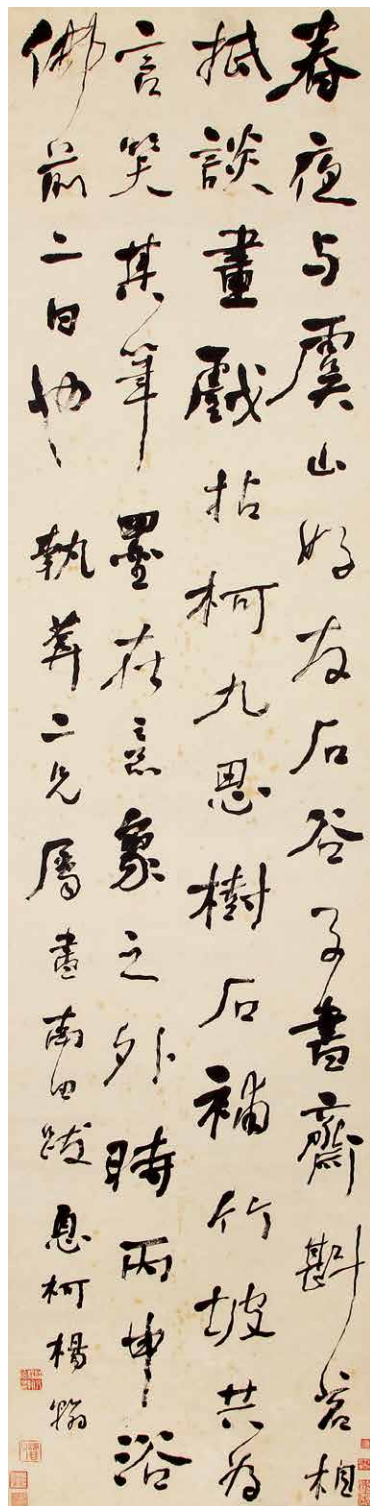 春夜与虞山好友石谷子書齋斟茗相
抵談畫戲拈柯九思樹石補竹坡共為
言笑其筆墨在意象之外時丙申浴
佛前二日也 執葊二兄屬書南田跋 息柯楊翰